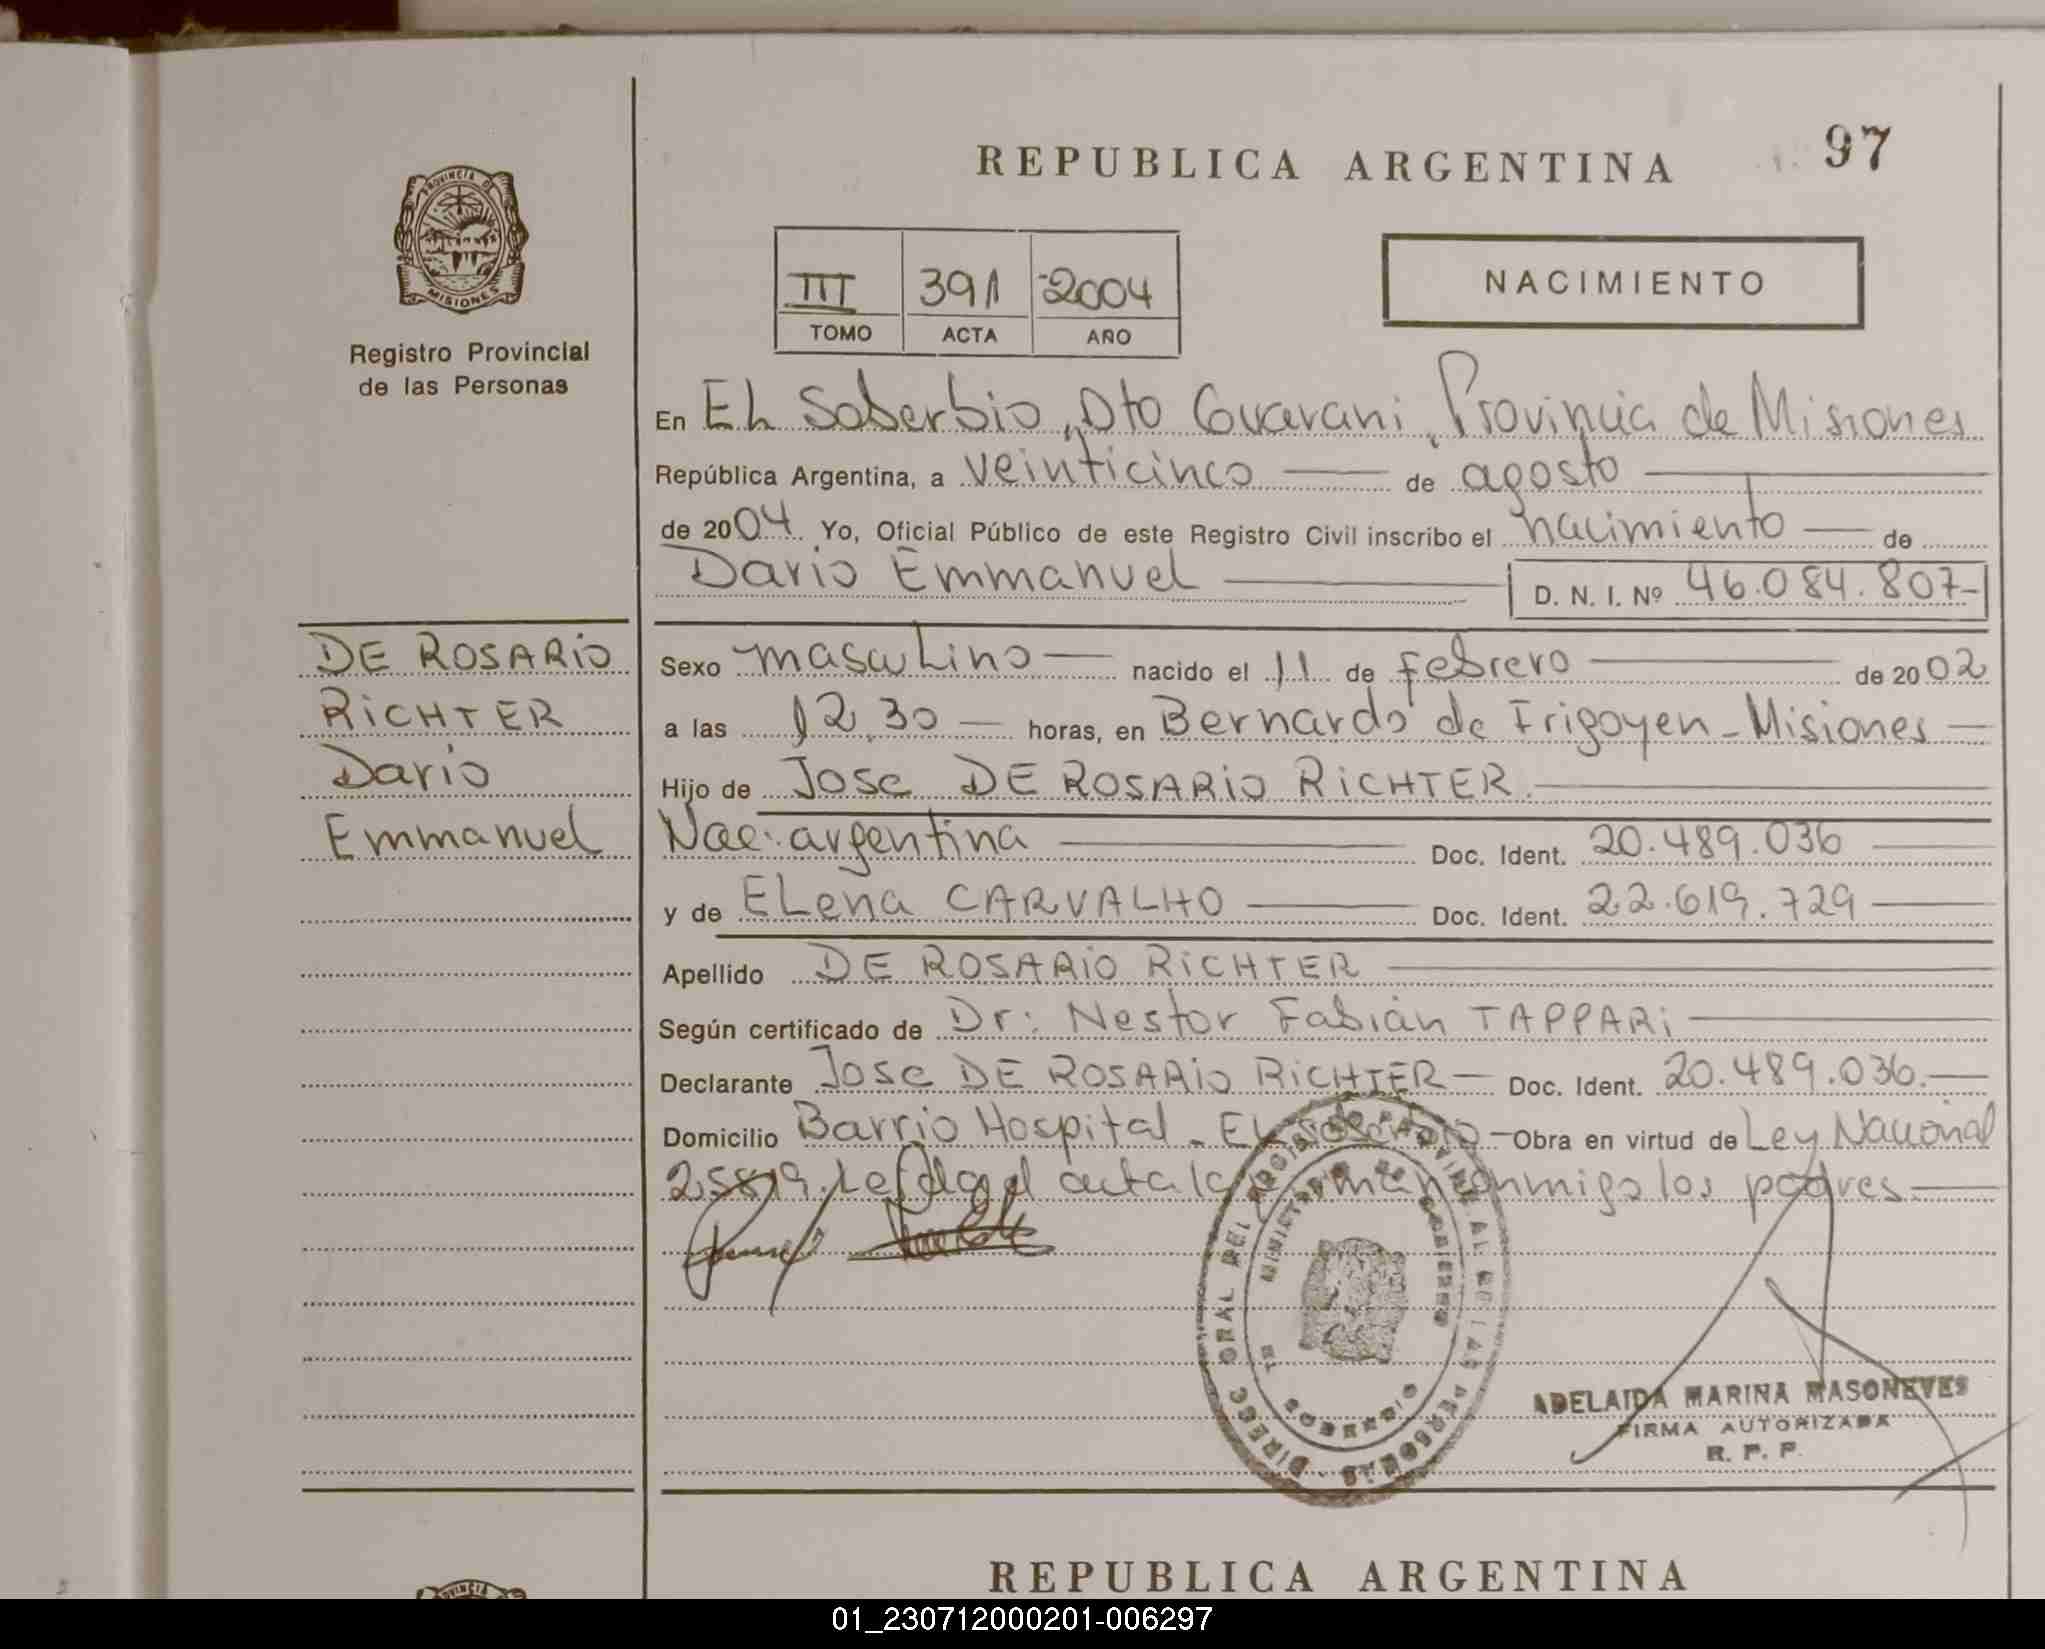 97
REPUBLICA ARGENTINA
PROVINCIA DE
MISIONES
Registro Provincial
de las Personas
III 391 2004
TOMO ACTA AÑO
NACIMIENTO
En EL Soberbio, Dto Guarani, Provincia de Misiones
República Argentina, a veinticinco de agosto
de 2004 Yo, Oficial Público de este Registro Civil inscribo el nacimiento de
Dario Emmanuel D. N. I. Nº 46.084.807-
DE ROSARIO
RICHTER
Dario
Emmanuel
Sexo masculino nacido el 11 de febrero de 2002
a las 12,30 horas, en Bernardo de Irigoyen - Misiones
Hijo de Jose DE ROSARIO RICHTER
Nac. argentina Doc. Ident. 20.489.036
y de ELena CARVALHO Doc. Ident. 22.619.729
Apellido DE ROSARIO RICHTER
Según certificado de Dr: Nestor Fabián TAPPARI
Declarante Jose DE ROSARIO RICHTER Doc. Ident. 20.489.036.
Domicilio Barrio Hospital - EL Soberbio - Obra en virtud de Ley Nacional
25819. Leida el acta la firman conmigo los padres
DIRECC GRAL DEL REGISTRO PROVINCIAL DE LAS PERSONAS
MINISTERIO DE GOBIERNO
MISIONES
ADELAIDA MARINA MASONEVES
FIRMA AUTORIZADA
R. P. P.
REPUBLICA ARGENTINA
01_230712000201-006297